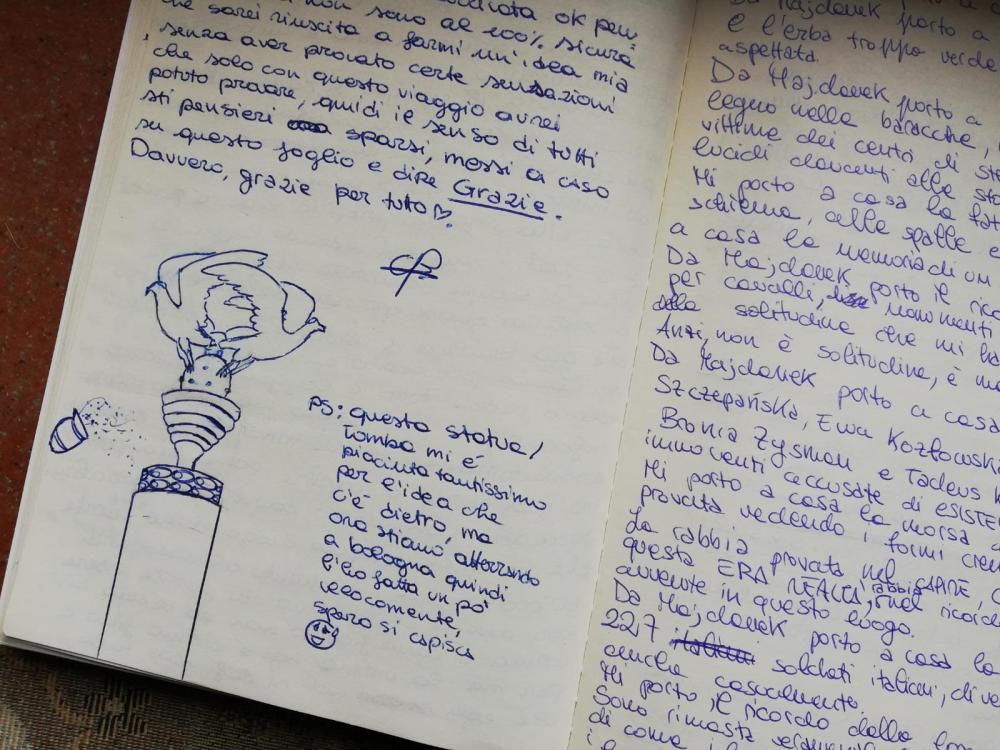 non sono al 100% sicura
che sarei riuscita a farmi un'idea mia
, senza aver provato certe sensazioni
che solo con questo viaggio avrei
potuto provare, quidi il senso di tutti
sti pensieri sparsi, messi a caso
su questo foglio e dire Grazie.
Davvero, grazie per tutto♡.
PS: questa statua/
tomba mi è
piaciuta tantissimo
per l'idea che
c'è dietro, ma
ora stiamo atterrando
a bologna quindi
l'ho fatta un po'
velocemente,
spero si capisca
Da Majdanek porto a
e l'erba troppo verde
aspettata.
Da Majdanek porto a
legno nelle baracche,
vittime dei centri di
lucidi davanti alle
Mi porto a casa la
schiena, alle spalle e
a casa la memoria di un
Da Majdanek porto il
per cavalli, monumenti
della solitudine che mi
Anzi, non è solitudine, è
Da Majdanek porto a casa
Szczepańska, Ewa
Bronia Zygman e Tadeus
innocenti accusate di
Mi porto a casa la morsa
provata vedendo i forni
La rabbia provata nel
questa ERA REALTÀ, nel
avvenute in questo luogo.
Da Majdanek porto a casa
227 soldati italiani,
anche casualmente.
Mi porto il ricordo della
Sono rimasta
di come